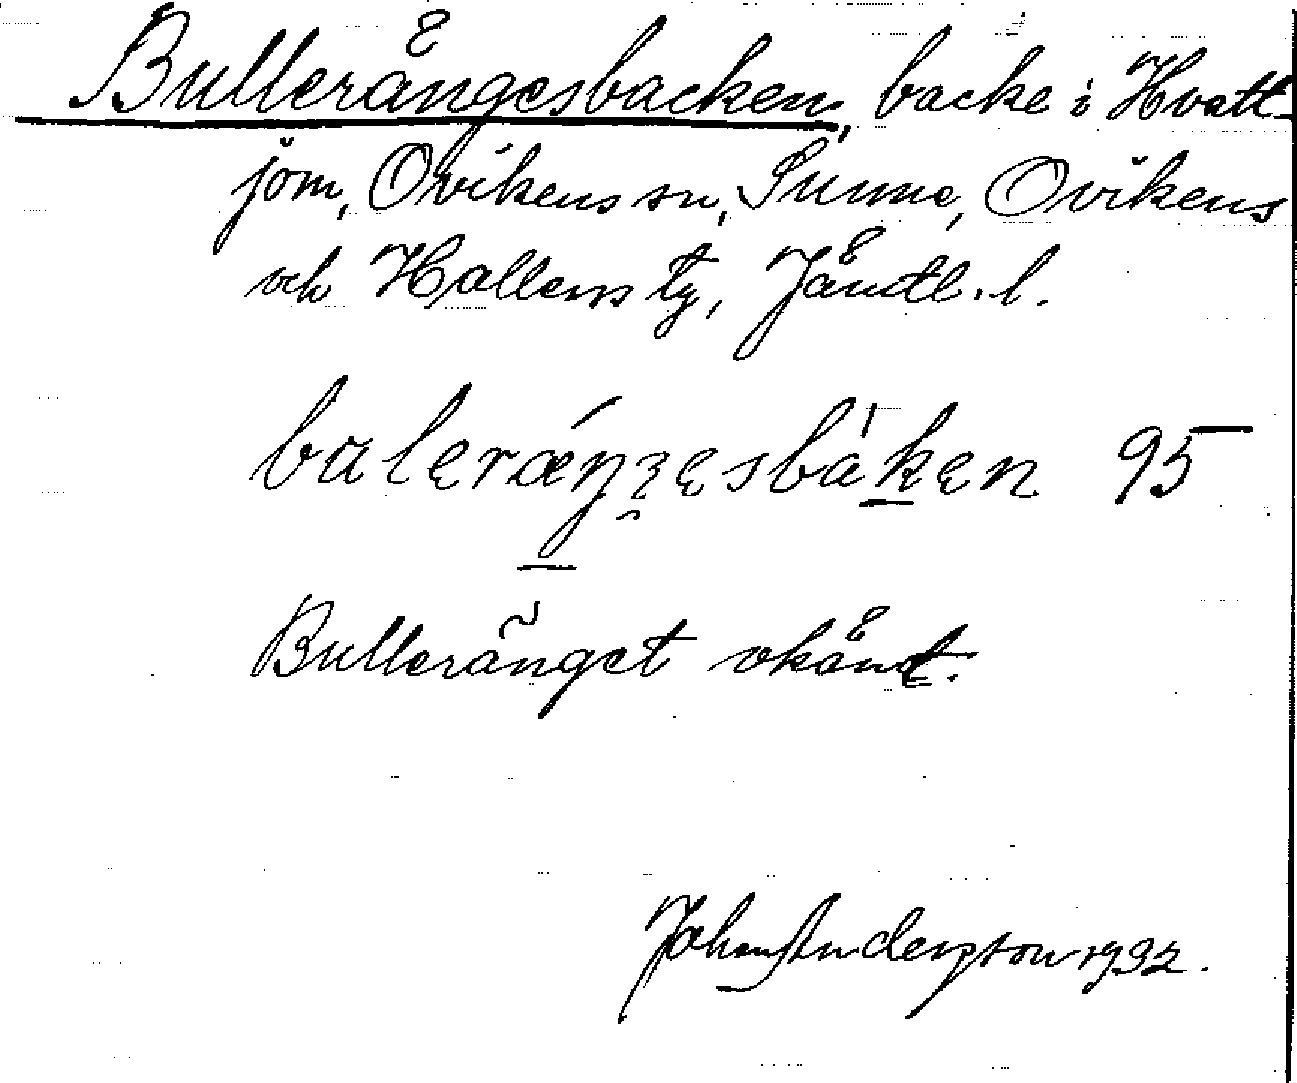 Bullerängesbacken, backe i Hvatt-
jom, Ovikens sn, Sunne, Ovikens
och Hallens tg, Jämtl. l.
bulerænʒesbàken 95
Bulleränget okänt.
Johan Anderson 1932.